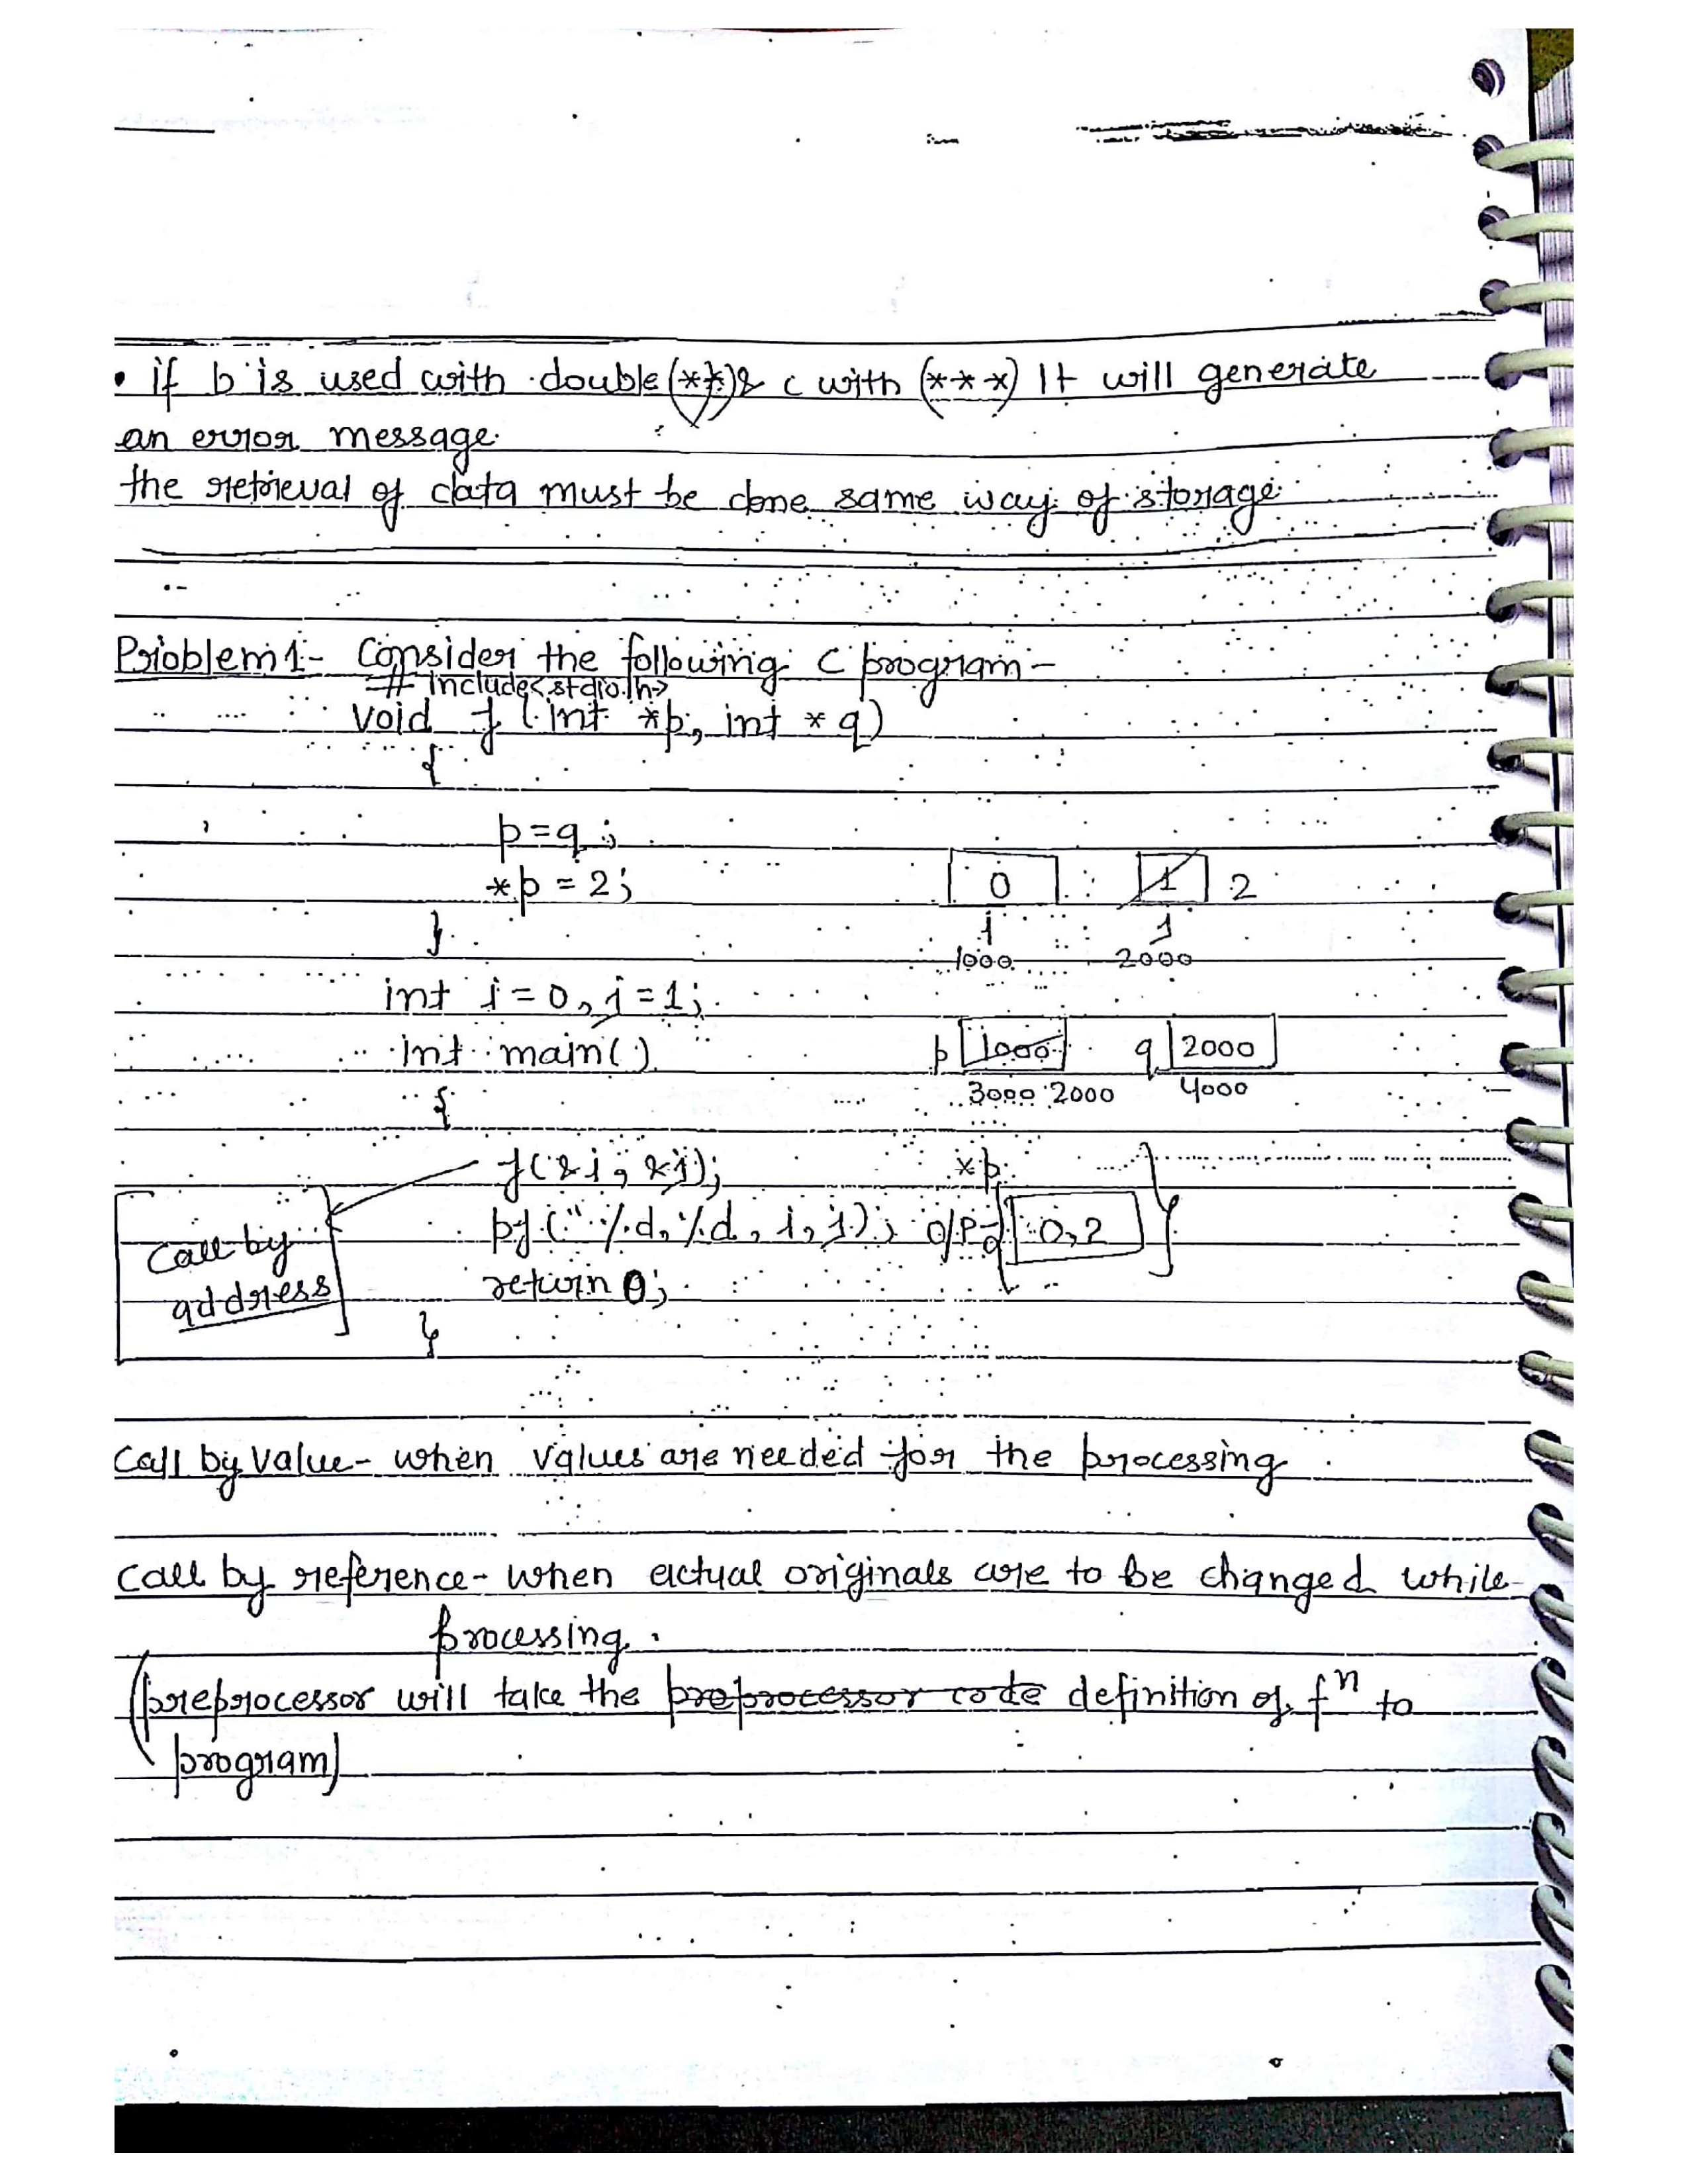 • if b is used with double (**) & c with (***) It will generate
an error message.
the retrieval of data must be done same way of storage
Problem 1:- Consider the following C program -
# include<stdio.h>
void f (int *p, int *q)
{
p = q ;
*p = 2;
0 1 2
}
i j
1000 2000
int i = 0, j = 1;
int main( )
p 1000 q 2000
{
3000 2000 4000
f(&i, &j); *p
pf (" %d, %d , i, j); o/p- 0, 2
Call by
address
return 0;
}
Call by Value - when values are needed for the processing
Call by reference - when actual originals are to be changed while
processing.
(preprocessor will take the preprocessor code definition of fn to
program)